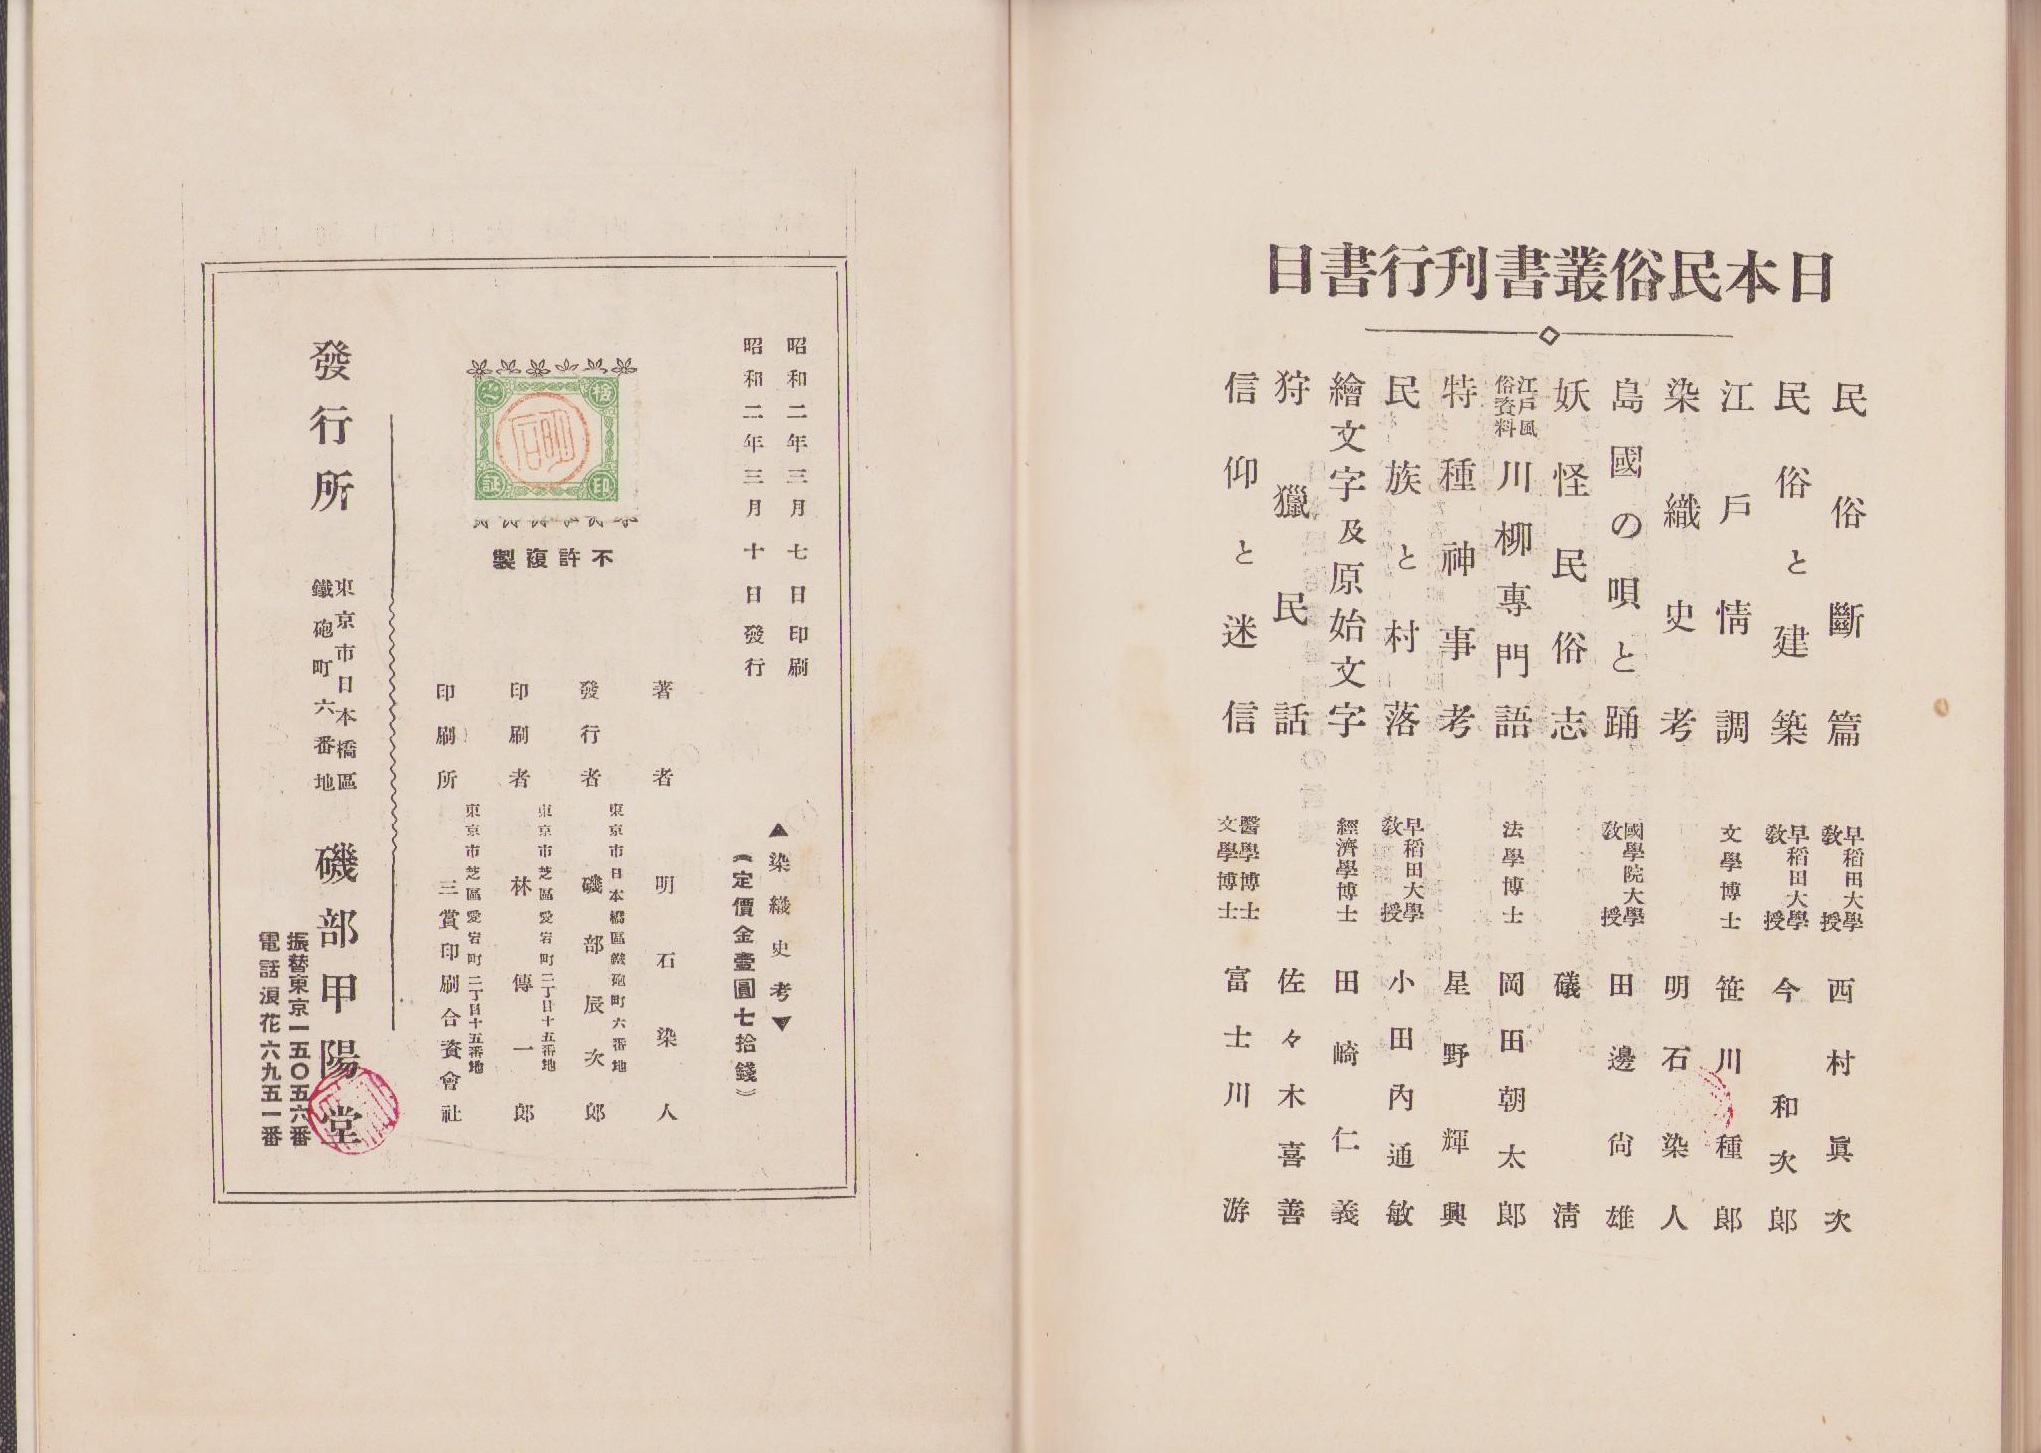 日本民俗叢書刊行書目
民俗斷篇 早稻田大學敎授 西村眞次
民俗と建築 早稻田大學敎授 今和次郎
江戶情調 文學博士 笹川種郎
染織史考 明石染人
島國の唄と踊 國學院大學敎授 田邊尙雄
妖怪民俗志 礒淸
江戶風俗資料 川柳專門語 法學博士 岡田朝太郎
特種神事考 星野輝興
民族と村落 早稻田大學敎授 小田內通敏
繪文字及原始文字 經濟學博士 田崎仁義
狩獵民話 佐々木喜善
信仰と迷信 醫學博士文學博士 富士川游
昭和二年三月七日印刷
昭和二年三月十日發行
▲染織史考▼
(定價金壹圓七拾錢)
著者 明石染人
東京市日本橋區鐵砲町六番地
發行者 磯部辰次郎
東京市芝區愛宕町二丁目十五番地
印刷者 林傳一郎
東京市芝區愛宕町二丁目十五番地
印刷所 三賞印刷合資會社
檢之印証
不許複製
發行所 東京市日本橋區鐵砲町六番地 磯部甲陽堂
振替東京一五〇五六番
電話浪花六九五一番